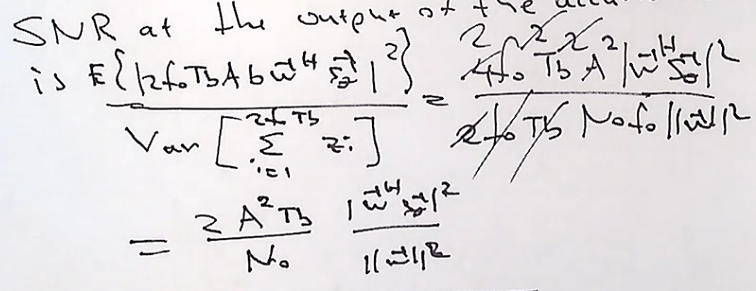 SNR at the output of the
is E{|2f₀TbAb w⃗ᴴ s⃗₀|²} / Var[∑_{i=1}^{2f₀Tb} zᵢ] = 4f₀²Tb²A²|w⃗ᴴs⃗₀|² / 2f₀Tb N₀f₀||w⃗||²
= 2A²Tb / N₀ |w⃗ᴴs⃗₀|² / ||w⃗||²